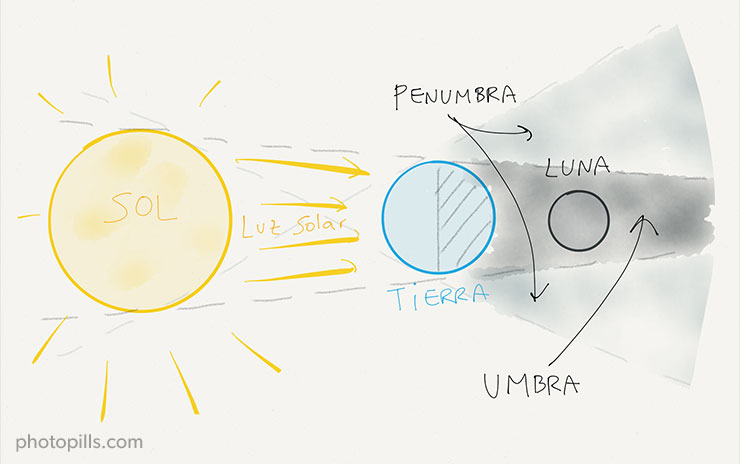 PENUMBRA
LUNA
SOL
Luz Solar
TIERRA
UMBRA
photopills.com